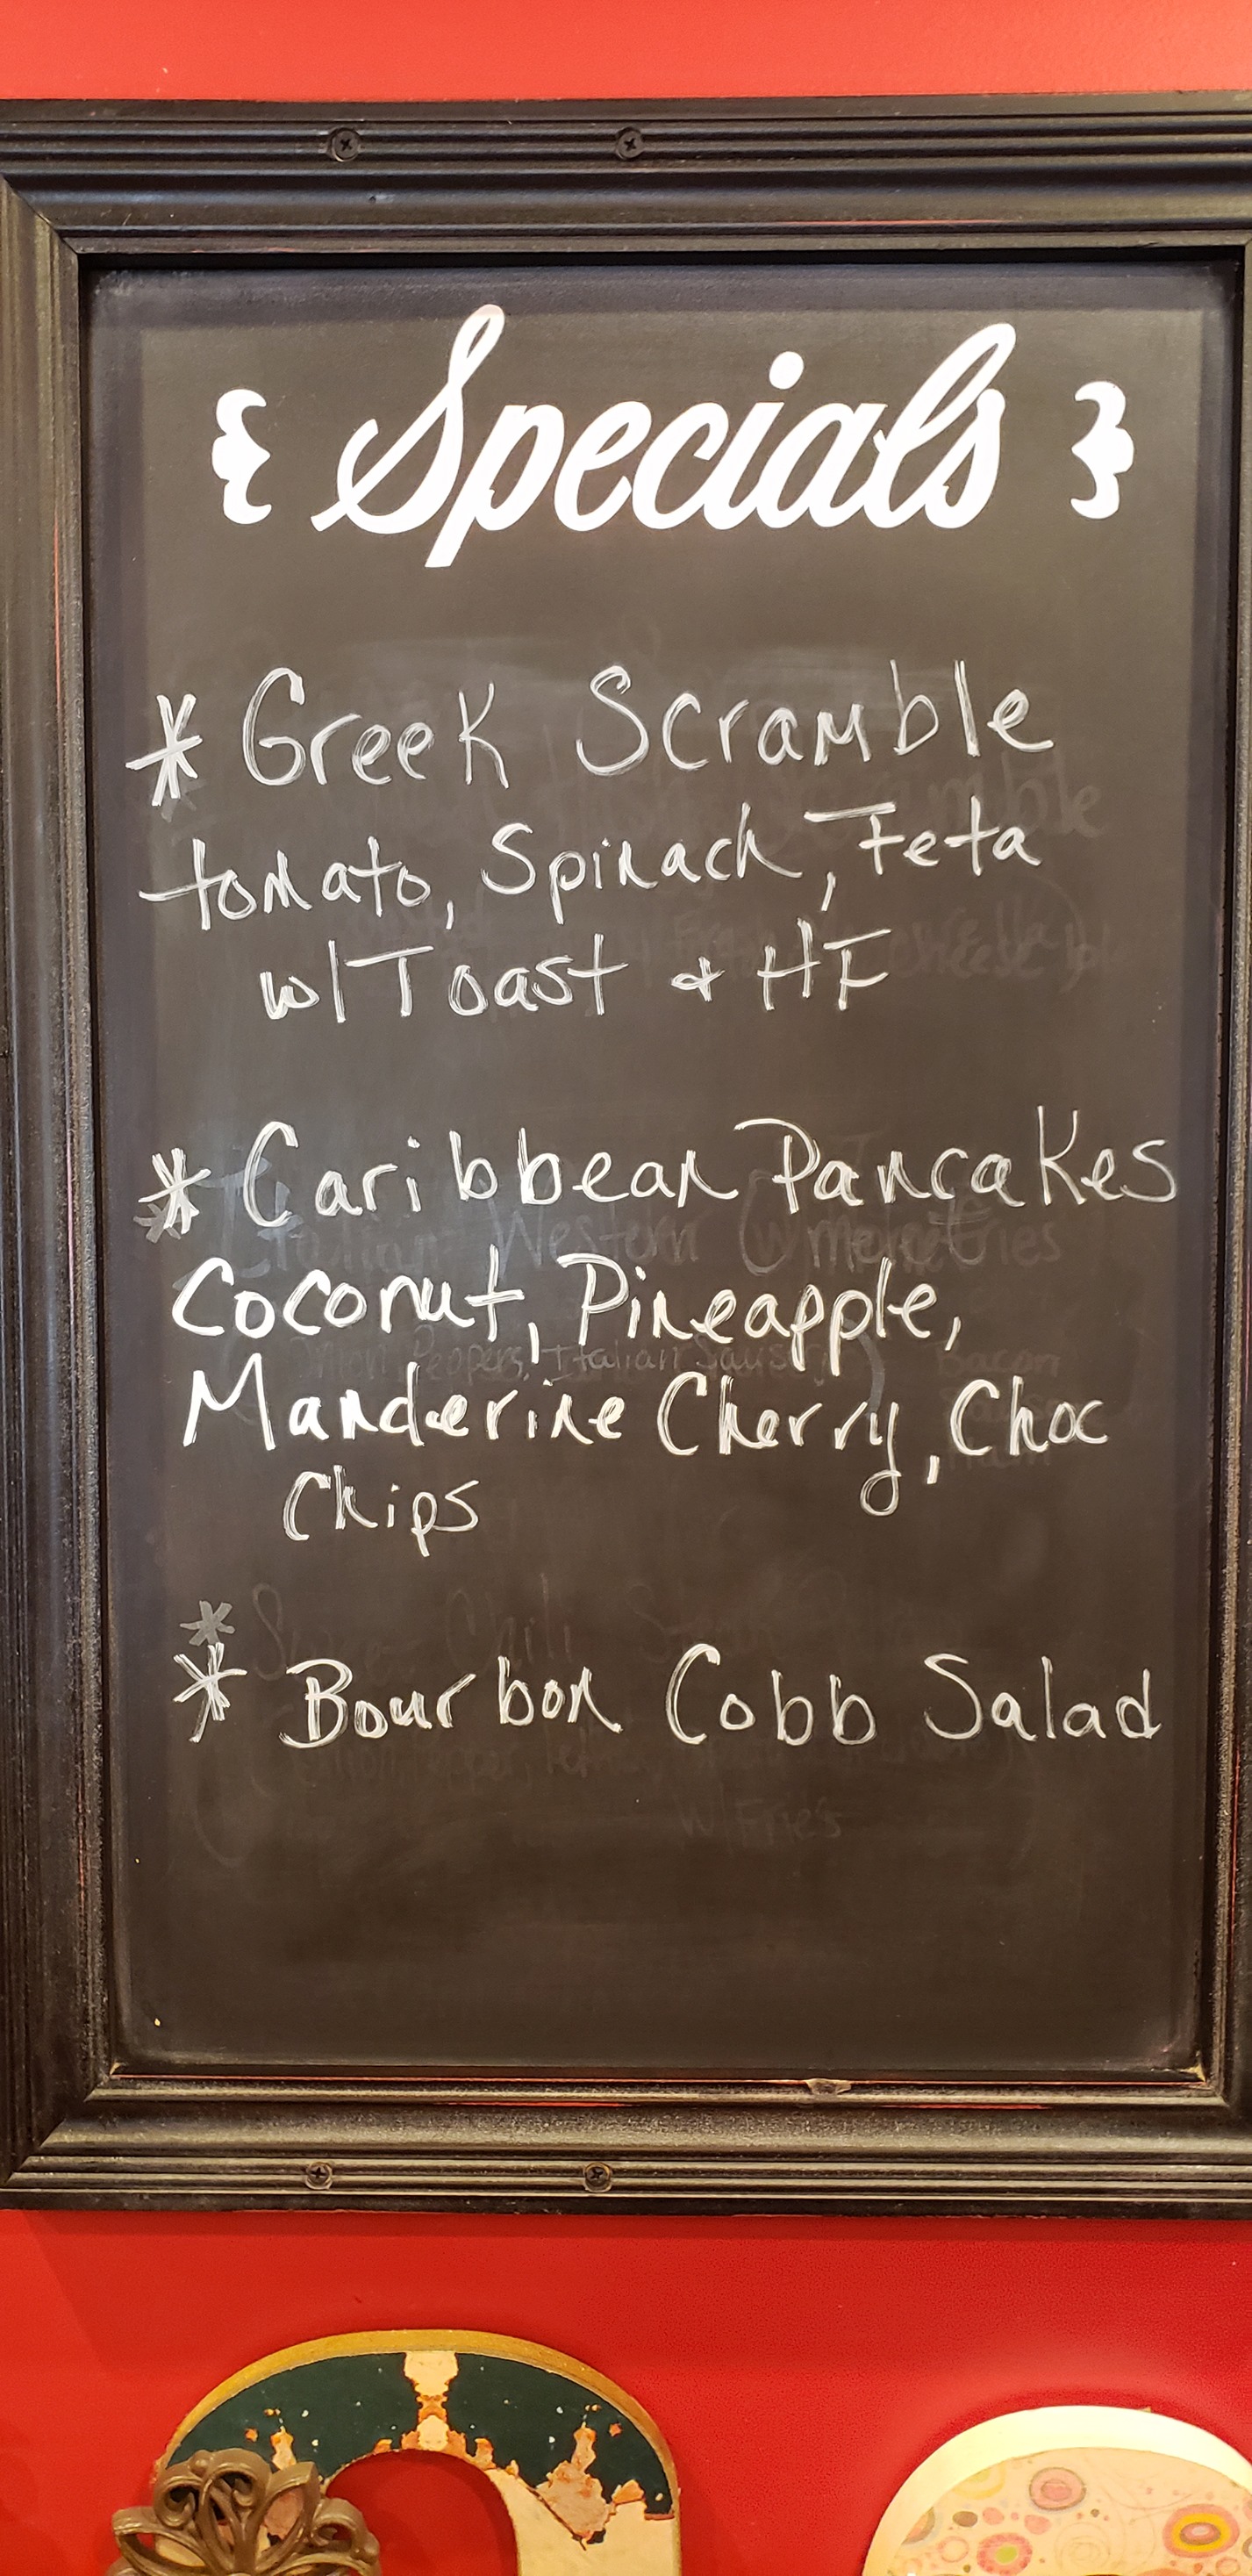 { Specials }
* Greek Scramble
tomato, Spinach, Feta
w/Toast & HF
* Caribbean Pancakes
Coconut, Pineapple,
Manderine Cherry, Choc
Chips
* Bourbon Cobb Salad
w/Fries